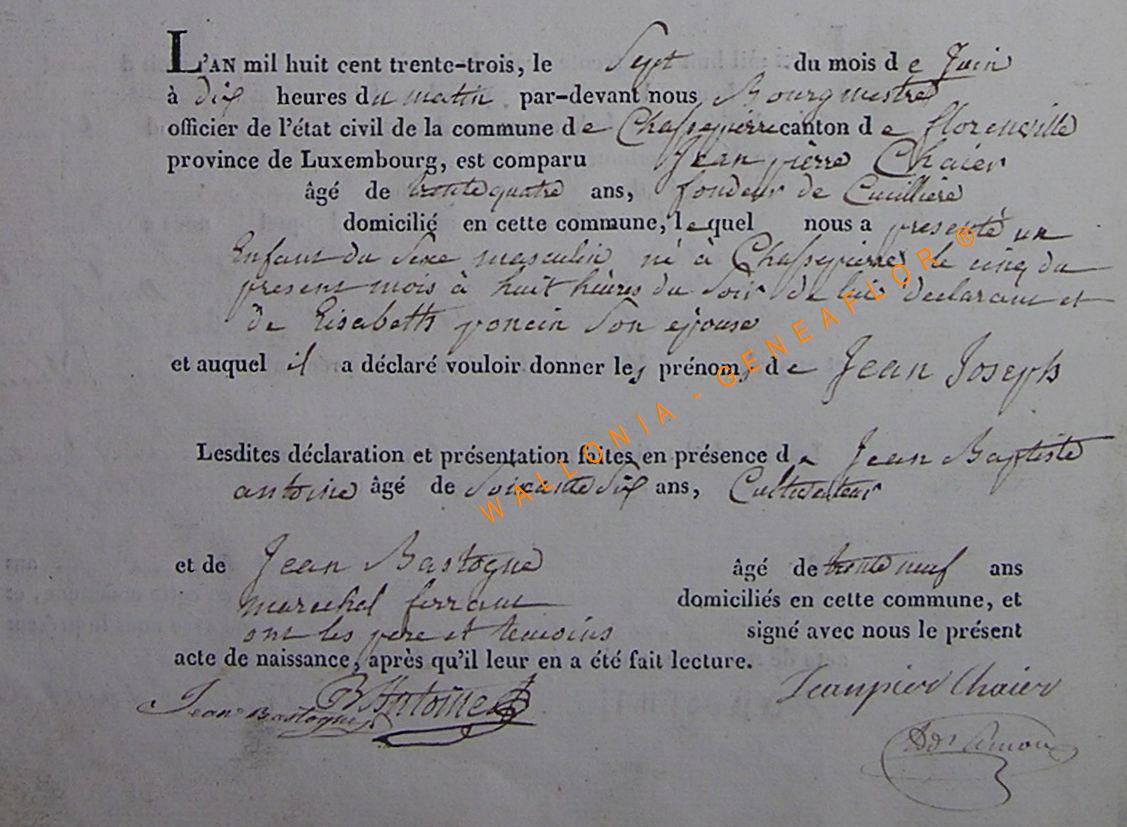 L'AN mil huit cent trente-trois, le Sept du mois de Juin
à dix heures du matin par-devant nous Bourgmestre
officier de l'état civil de la commune de Chassepierre canton de florenville
province de Luxembourg, est comparu Jean pierre Chaier
âgé de trente quatre ans, fondeur de Cuilliere
domicilié en cette commune, lequel nous a presenté un
Enfant du Sexe masculin né à Chassepierre le cinq du
present mois à huit heures du Soir de lui déclarant et
de Elisabeth poncin Son epouse
et auquel il a déclaré vouloir donner les prénoms de Jean Joseph
Lesdites déclaration et présentation faites en présence de Jean Baptiste
antoine âgé de Soixante Six ans, Cultivateur
et de Jean Bastogne âgé de trente neuf ans
marechal ferrant domiciliés en cette commune, et
ont les pere et temoins signé avec nous le présent
acte de naissance, après qu'il leur en a été fait lecture.
Jean Bastogne B Antoine Jeanpier Chaier
WALLONIA - GENEAFLOR ®